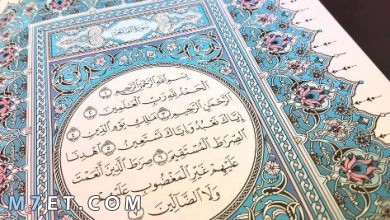 سورة الفاتحة
بسم الله الرحمن الرحيم ١
الحمد لله رب العالمين ٢
الرحمن الرحيم ٣ ملك يوم الدين ٤
إياك نعبد وإياك نستعين ٥ اهدنا
الصراط المستقيم ٦ صراط الذين أنعمت
عليهم غير المغضوب عليهم
ولا الضالين ٧
M7ET.COM